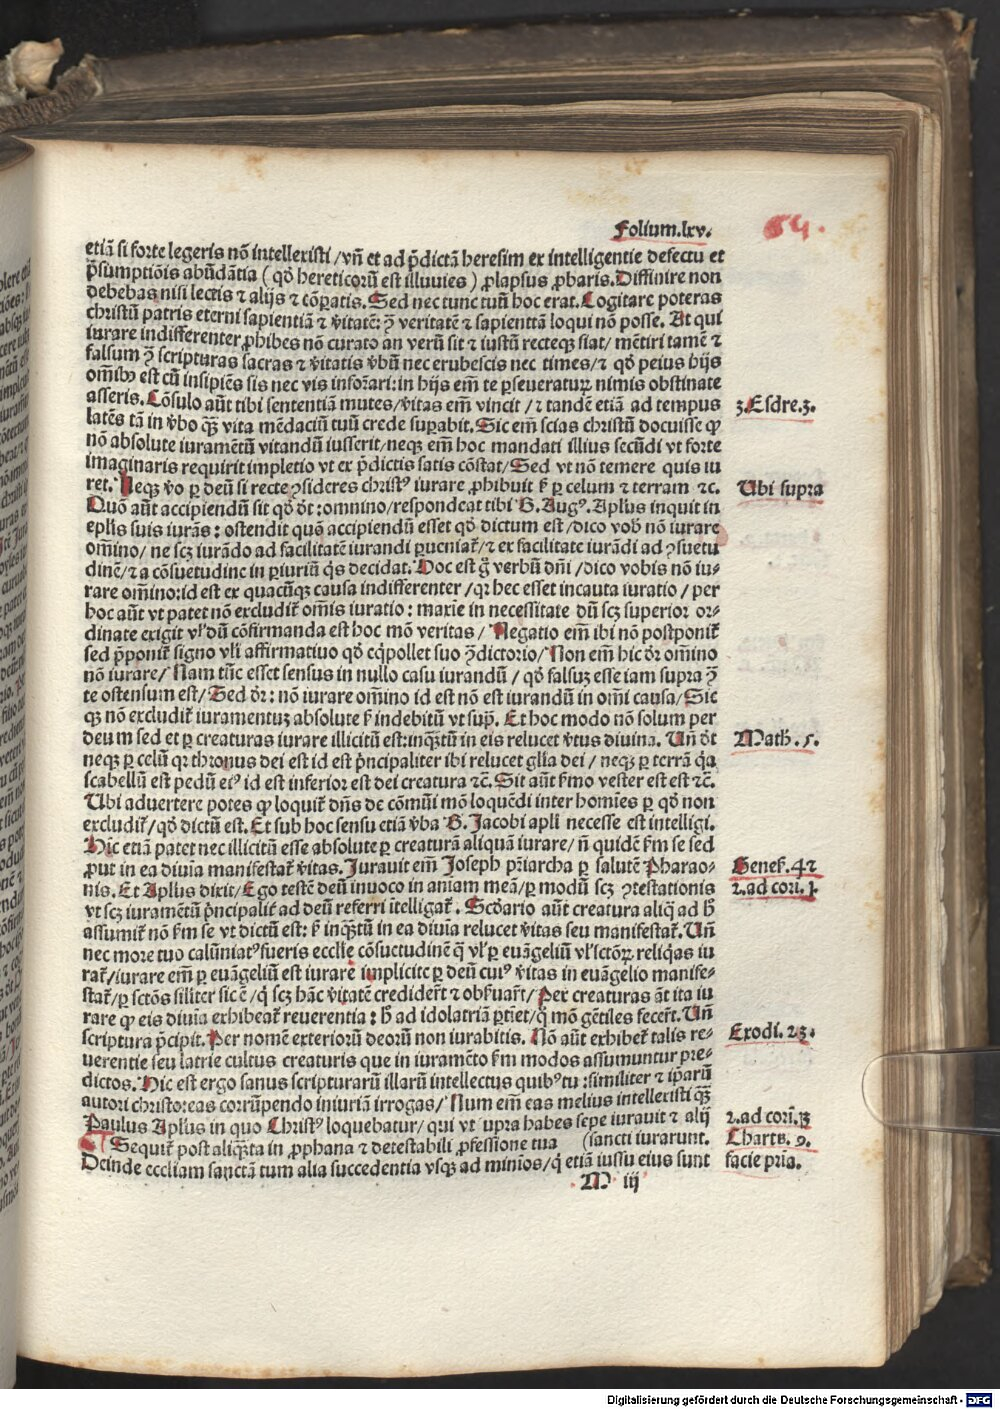 Folium.lxv.
64.
etiã si forte legeris nõ intellexisti /vñ et ad p̃dictã heresim ex intelligentie defectu et
p̃sumptiõis abũdãtia ( qđ hereticorũ est illuvies ) ꝓlapsus ꝓbaris. Diffinire non
debebas nisi lectis ⁊ alijs ⁊ cõꝑatis. Sed nec tunc tuũ hoc erat. Cogitare poteras
christũ patris eterni sapientiã ⁊ v̓itatẽ: ꝯ̃ veritatẽ ⁊ sapientiã loqui nõ posse. At qui
iurare indifferenter ꝓhibes nõ curato an verũ sit ⁊ iustũ recteqꝫ fiat/ mẽtiri tamẽ ⁊
falsum ꝯ̃ scripturas sacras ⁊ v̓itatis v̓bũ nec erubescis nec times/⁊ qđ peius hijs
om̃ibꝰ est cũ insipiẽs sis nec vis infor̃ari: in hijs em̃ te ꝑseveraturꝝ nimis obstinate
asseris. Cõsulo aũt tibi sententiã mutes/v̓itas em̃ vincit / ⁊ tandẽ etiã ad tempus
latẽs tã in v̓bo qꝫ̃ vita mẽdaciũ tuũ crede suꝑabit. Sic em̃ scias christũ docuisse ꝙ
nõ absolute iuramẽtũ vitandũ iusserit/neqꝫ em̃ hoc mandati illius secũdi vt forte
imaginaris requirit impletio vt ex p̃dictis satis cõstat/ Sed vt nõ temere quis iu
ret. Neqꝫ v̓o ꝑ deũ si recte ꝯsideres christꝰ iurare ꝓhibuit ẜ ꝑ celum ⁊ terram ⁊c.
Quõ aũt accipiendũ sit qđ d̃t :omnino/respondeat tibi B. Augꝰ. Aplus inquit in
eplis suis iurãs : ostendit qua accipiendũ esset qđ dictum est /dico vob̃ nõ iurare
om̃ino/ ne scꝫ iurãdo ad facilitatẽ iurandi ꝑueniat̃/⁊ ex facilitate iurãdi ad ꝯsuetu
dinẽ/⁊ a cõsuetudine in ꝑiuriũ q̃s decidat. Hoc est g̃ verbũ dñi /dico vobis nõ iu⸗
rare om̃ino:id est ex quacũqꝫ causa indifferenter /qꝛ hec esset incauta iuratio / per
hoc aũt vt patet nõ excludit̃ om̃is iuratio : maxĩe in necessitate dũ scꝫ superior or⸗
dinate exigit vl̓ dũ cõfirmanda est hoc mõ veritas / Negatio em̃ ibi nõ postponit̃
sed p̃ponit̃ signo vl̓i affirmatiuo qđ eq̃pollet suo ꝯ̃dictorio/ Non em̃ hic dr̃ om̃ino
nõ iurare/ Nam tũc esset sensus in nullo casu iurandũ / qđ falsuꝫ esse iam supra ꝯ̃
te ostensum est/ Sed dr̃: nõ iurare om̃ino id est nõ est iurandũ in om̃i causa/ Sic
qꝫ nõ excludit̃ iuramentuꝫ absolute ẜ indebitũ vt sup̃. Et hoc modo nõ solum per
deum sed et ꝑ creaturas iurare illicitũ est:inqꝫ̃tũ in eis relucet v̓tus divina. Uñ d̃t
neqꝫ ꝑ celũ qꝛ thronus dei est id est p̃ncipaliter ibi relucet gl̃ia dei / neqꝫ ꝑ terrã q̃a
scabellũ est pedũ eiꝰ id est inferior est dei creatura ⁊c̃. Sit aũt ẜmo vester est est ⁊c̃.
Ubi advertere potes ꝙ loquit̃ dñs de cõmũi mõ loquẽdi inter homĩes ꝑ qđ non
excludit̃/qđ dictũ est. Et sub hoc sensu etiã v̓ba B. Jacobi apl̃i necesse est intelligi.
Hic etiã patet nec illicitũ esse absolute ꝑ creaturã aliquã iurare/ ñ quidẽ ẜm se sed
ꝓut in ea diuĩa manifestat̃ v̓itas. Jurauit em̃ Joseph p̃riarcha ꝑ salutẽ Pharao⸗
nis. Et Aplus dixit/ Ego testẽ deũ inuoco in aniam meã/ꝑ modũ scꝫ ꝯ̃testationis
vt scꝫ iuramẽtũ p̃ncipalit̓ ad deũ referri ĩtelligat̃. Scđario aũt creatura aliq̃ ad h̃
assumit̃ nõ ẜm se vt dictũ est: ẜ inqꝫ̃tũ in ea diuĩa relucet v̓itas seu manifestat̃. Uñ
nec more tuo calũniatꝰfueris eccl̃ie cõsuetudinẽ q̃ vl̓ ꝑ euãgeliũ vl̓ sctõꝝ reliq̃as iu
rat̃/iurare em̃ ꝑ euãgeliũ est iurare implicite ꝑ deũ cuiꝰ v̓itas in euãgelio manife⸗
stat̃/ꝑ sctõs sil̓iter sic ẽ /q̓ scꝫ hãc v̓itatẽ credider̃t ⁊ obẜuar̃t/ Per creaturas ãt ita iu
rare ꝙ eis diuĩa exhibeat̃ reuerentia : h̃ ad idolatriã ꝑtĩet/q̓ mõ gẽtiles fecer̃t. Uñ
scriptura p̃cipit. Per nomẽ exteriorũ deorũ non iurabitis. Nõ aũt exhibet̃ talis re⸗
verentie seu latrie cultus creaturis que in iuramẽto ẜm modos assumuntur pre⸗
dictos. Hic est ergo sanus scripturarũ illarũ intellectus quibꝰtu :similiter ⁊ ip̃arũ
autori christo:eas corrũpendo iniuriã irrogas/ Num em̃ eas melius intellexisti qꝫ̃
Paulus Aplus in quo Christꝰ loquebatur/ qui vt supra habes sepe iurauit ⁊ alij
Sequit̃ post aliqꝫ̃ta in ꝓphana ⁊ detestabili ꝓfessione tua (sancti iurarunt.
Deinde eccl̃iam sanctã tum alia succedentia vsqꝫ ad minĩos/q̃ etiã iussu eius sunt
M iij
3.Esdre.3.
Ubi supra
Math .5.
Genes̃. 42
2.ad cori. 1.
Exodi. 23.
2.ad corĩ.13
Charta. 9.
facie pria.
Digitalisierung gefördert durch die Deutsche Forschungsgemeinschaft - DFG